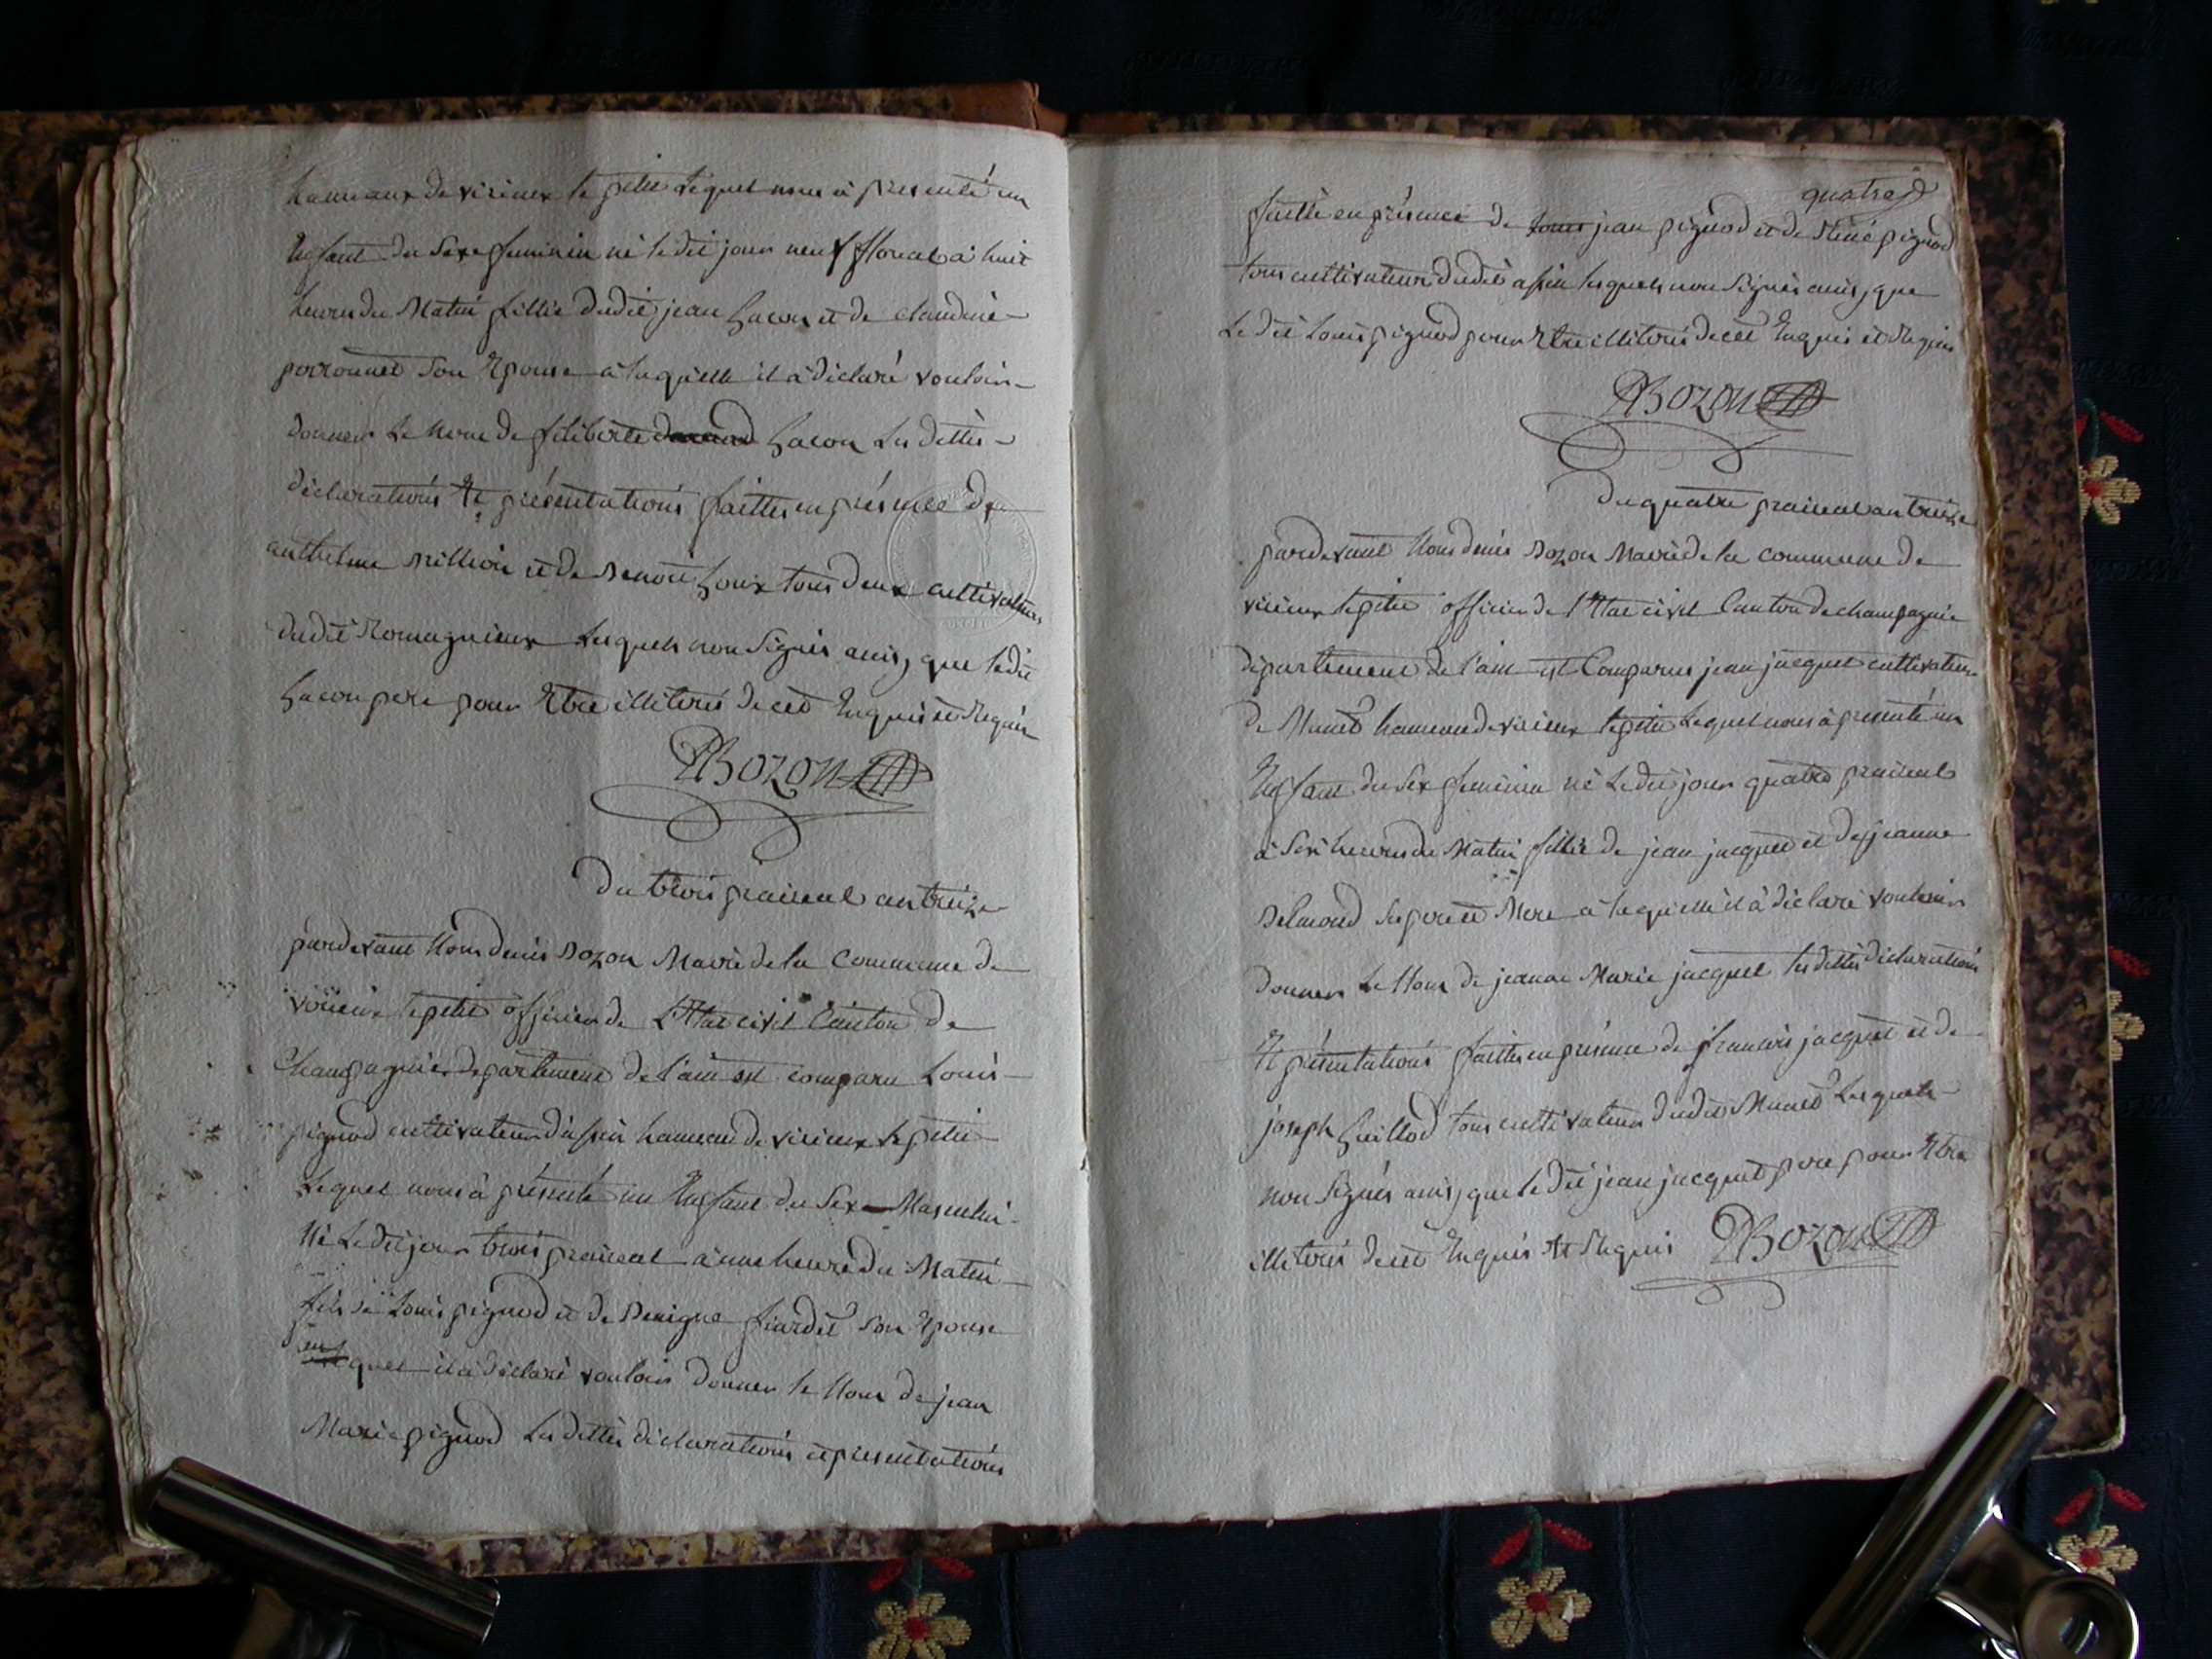 hameaux de virieux le petit Lequel nous à presenté un
Enfant du Sexe feminin né le dit jour neuf floreal à huit
heures du Matin fillie dudit jean Lacou et de claudine
perronnet Son Epouse à laquelle il à déclaré vouloir
donner Le Nom de feliberte Lacou Les dittes
déclarations Et présentations faittes en présence de
anthelme et de Benoit Roux tous deux cultivateurs
dudit Romagnieux Lesquels non Signés ainsj que ledit
Lacou pere pour Etre illiterés de ce Enquis et Requis
DBozon
du trois prairial an treize
pardevant Nous denis Bozon Maire de la Commune de
virieux le petit officier de L'Etat civil Canton de
Champagnie departement de l'ain est comparu Louis
pignod cultivateur d'assin hameau de virieux le petit
Lequel nous à présenté un Enfant du Sexe Masculin
Né Le dit jour trois prairial à une heure du Matin
fils de Louis pignod et de Benigne fiardet Son Epouse
auquel il à déclaré vouloir donner le Nom de jean
Marie pignod Les dittes déclarations et presentations
quatre
faitte en présence de Louis jean pignod et de Réné pignod
tous cultivateurs dudit assin lesquels non Signés ainsj que
Le dit Louis pignod pour Etre illiterés de ce Enquis et Requis
DBozon
du quatre prairial an treize
pardevant Nous denis Bozon Maire de la commune de
virieux le petit officier de l'Etat civil Canton de champagnie
département de l'ain est Comparus jean jacquet cultivateur
de Munet hameau de virieux le petit Lequel nous à presenté un
Enfant du Sex feminin né Le dit jour quatre prairial
à Six heures du Matin fillie de jean jacquet et de jeanne
Belmond Ses pere et Mere à laquelle il à déclaré vouloir
donner Le Nom de jeanne Marie jacquet les dittes déclarations
Et présentations faittes en présence de francois jacquet et de
joseph Guillod tous cultivateurs dudit Munet Lesquels
non Signés ainsj que le dit jean jacquet pere pour Etre
illiterés de ce Enquis Et Requis DBozon